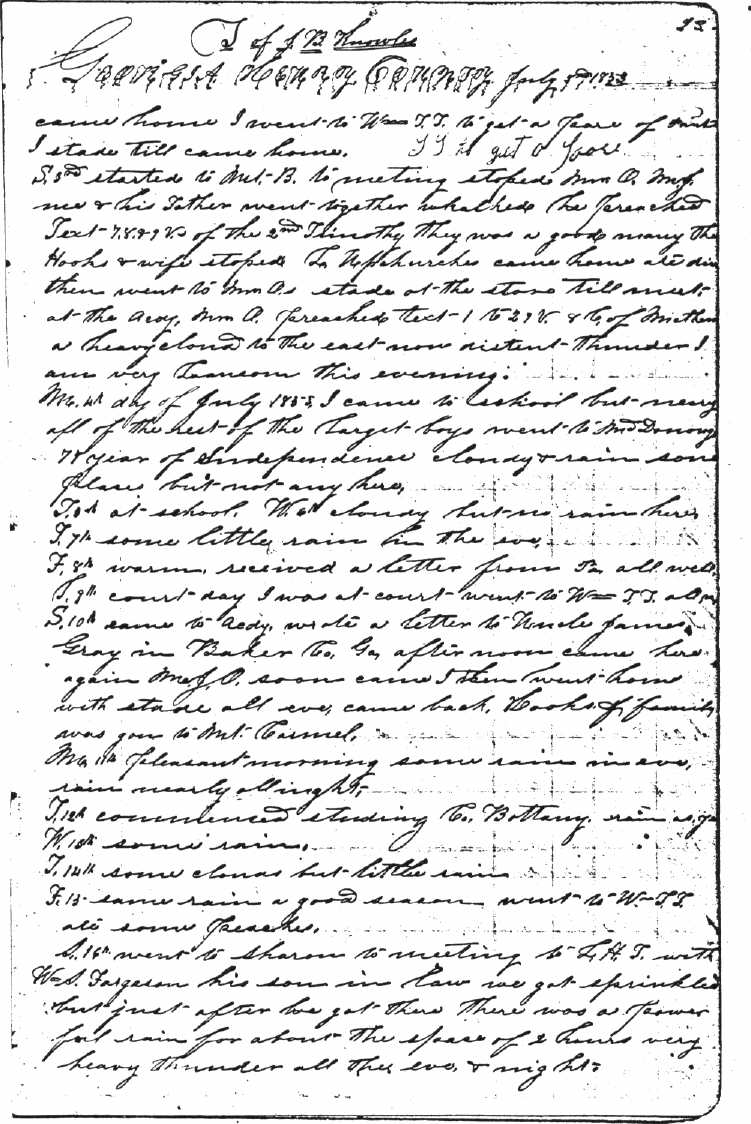 23
J of J B Knowles
GEORGIA HENRY COUNTY July 3rd 1853
came home I went to Wm T.T. to get a peare of
I staid till came home. T T to get a
S. 3rd started to Mt. B. to meting stoped Wm O.
me & his Father went together he preached
Text 7.8.&9 V. of the 2nd Timothy they was a good many
Hooks & wife stoped Upchurches came home ate
then went to Wm O.s staid at the store till meet
at the Acdy. Wm O. preached text 1 to 29 V. & C, of
a heavy cloud to the east now distent thunder I
am very this evening.
Mo. 4th day of July 1853, I came to school but neary
all of the rest of the larget boys went to
78 year of Independence cloudy & rain some
plases but not any here,
T. 5th at school. W. 6th cloudy but no rain here
T. 7th some little rain in the eve,
F. 8th warm, received a letter from all well
S. 9th court day I was at court went to Wm T.T. all
S. 10th came to Acdy. wrote a letter to Uncle James
Gray in Baker Co, Ga, after noon came here
again O. soon came I then went home
with staid all eve, came back, Hooks & family
was gon to Mt. Carmel.
Mo, 11th pleasant morning some rain in eve,
rain nearly all night,
T. 12th commenced studing Co, Bottany. rain
W. 13th some rain.
T. 14th some clouds but little rain
F. 15 some rain a good season went to Wm T.T.
ate some peaches.
S. 16th went to Sharon to meeting to L, H T. with
Wm S. Fargeson his son in law we got sprinkled
but just after we got there there was a power
ful rain for about the space of 2 hours very
heavy thunder all the eve, & night.